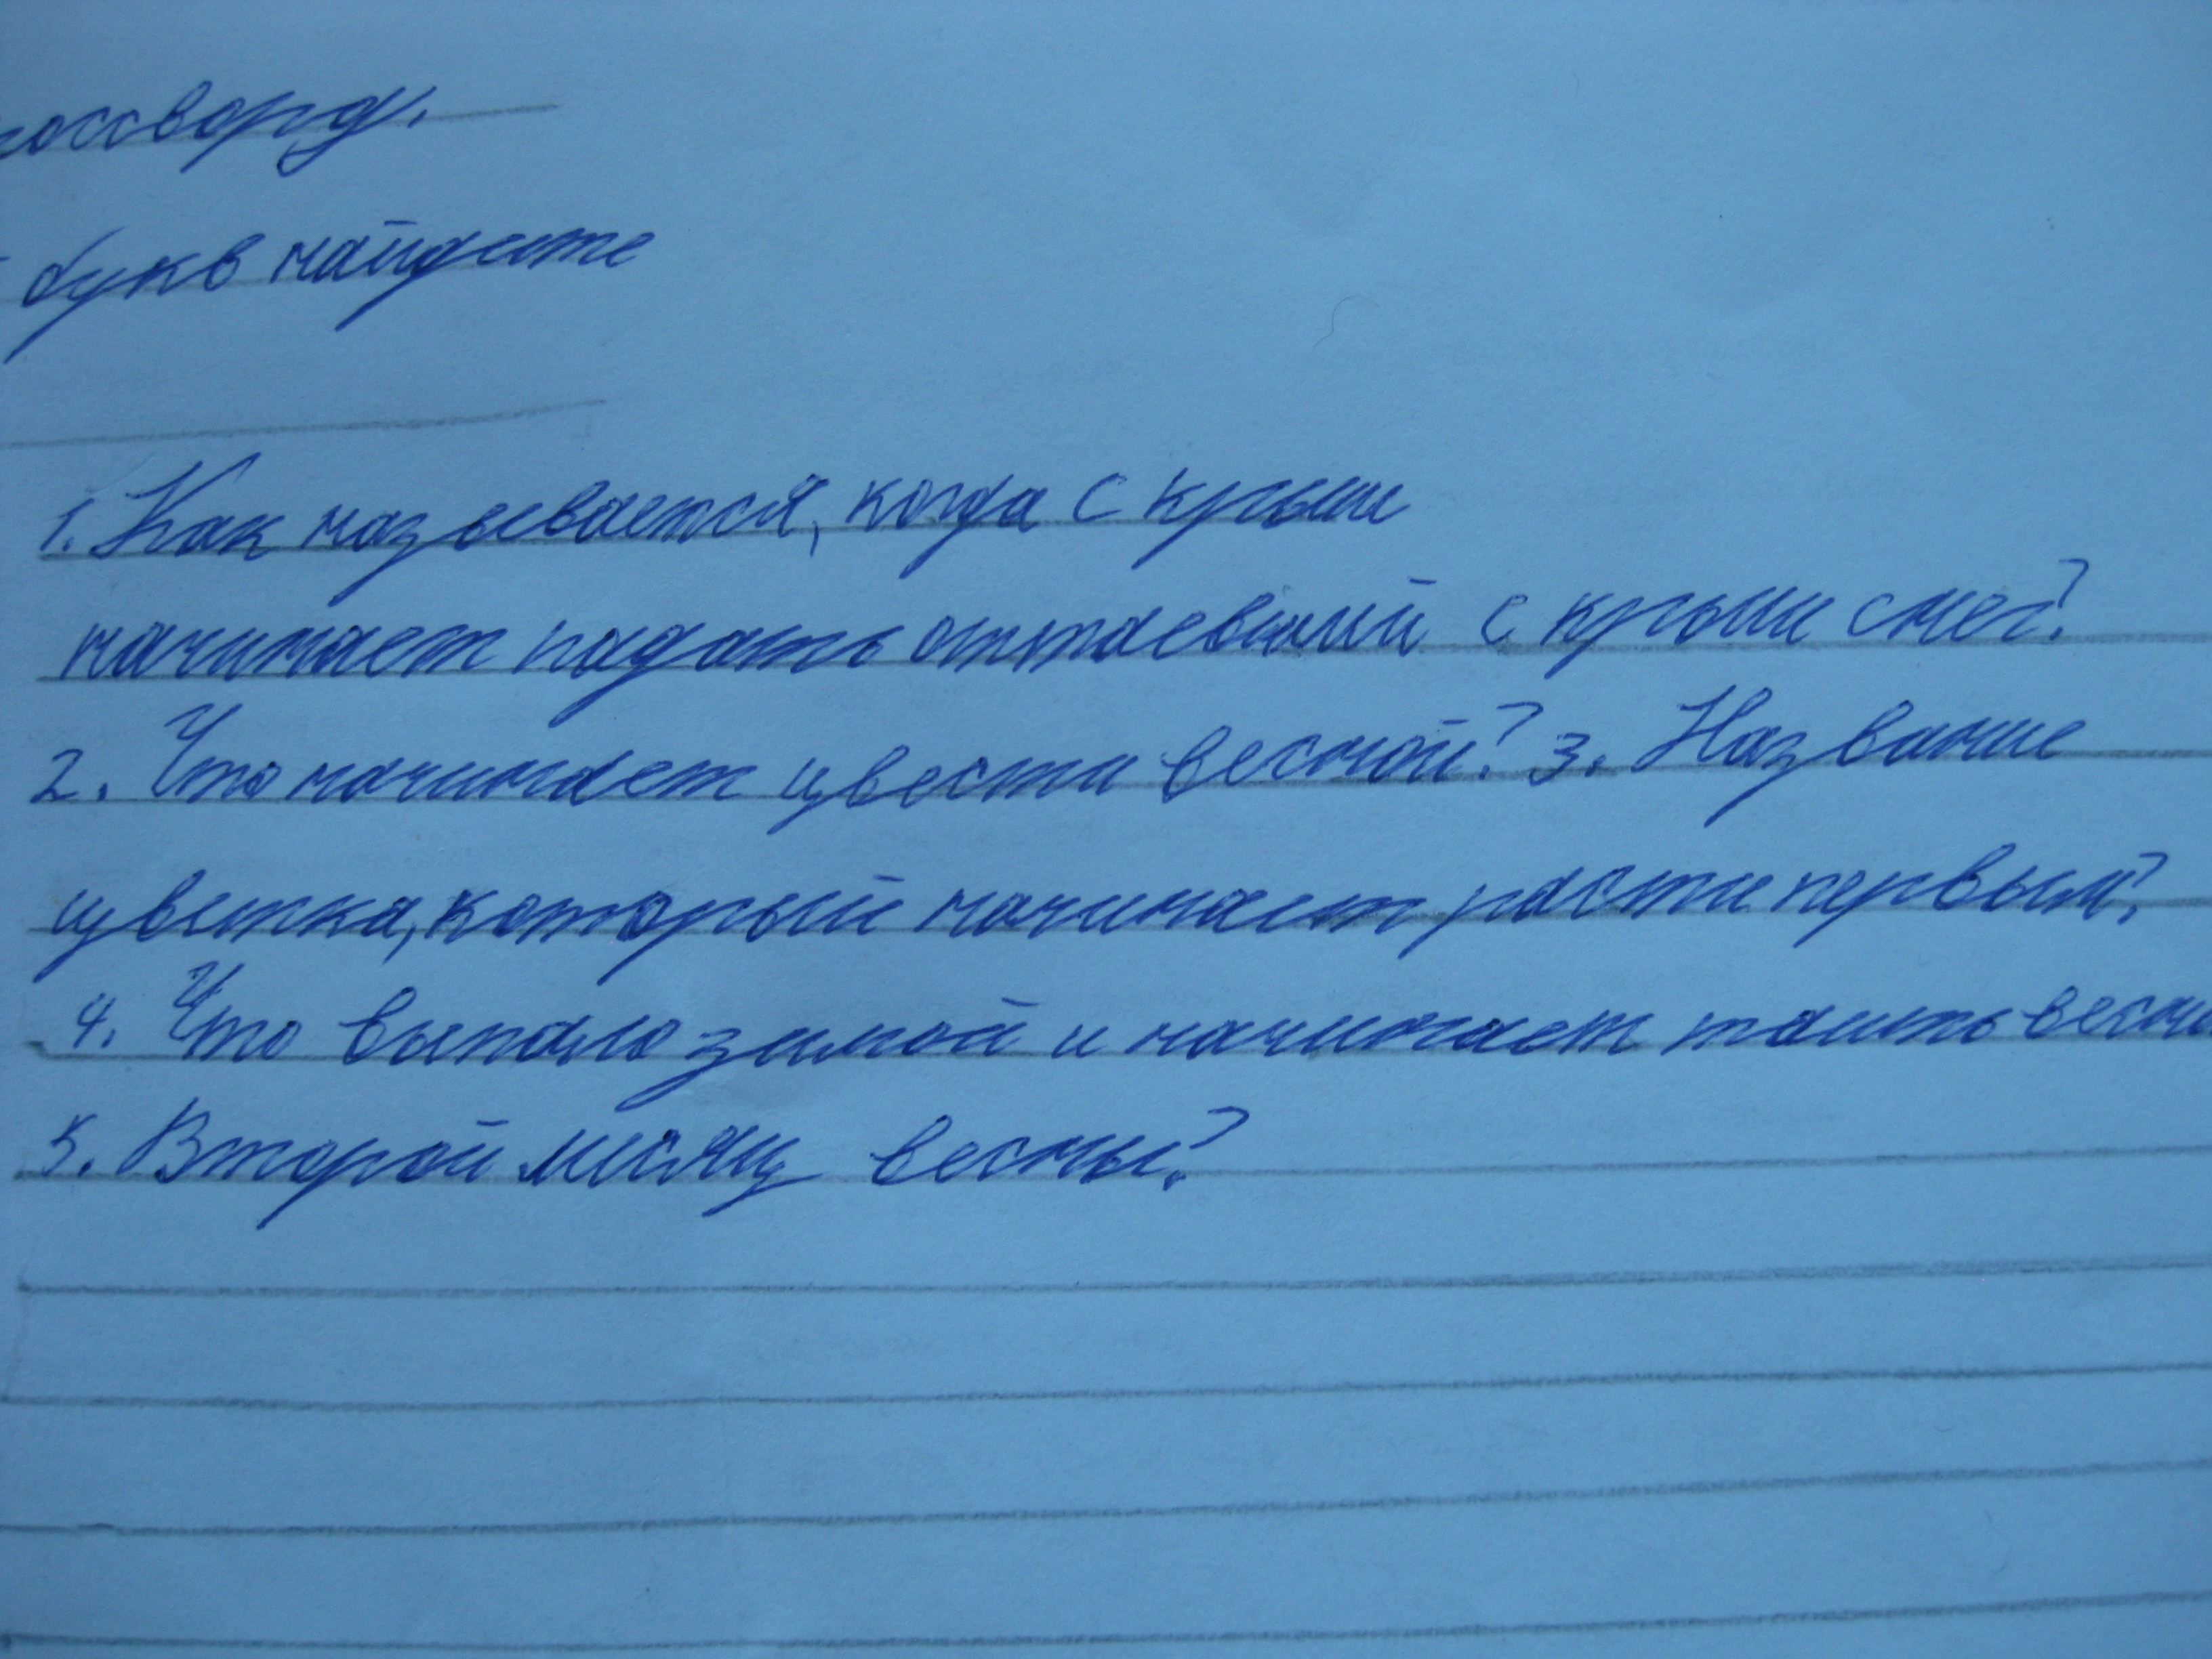 россворд.
букв найдите
1. Как называется, когда с крыши
начинает падать оттаевший с крыши снег?
2. Что начинает цвести весной? 3. Название
цветка, который начинает расти первым?
4. Что выпало зимой и начинает таить весно
5. Второй месяц весны?